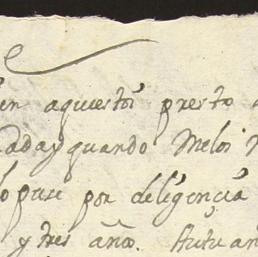 en aquestos presto
cada y quando Me los
lo puse por deligencia
y tres años. Autu an